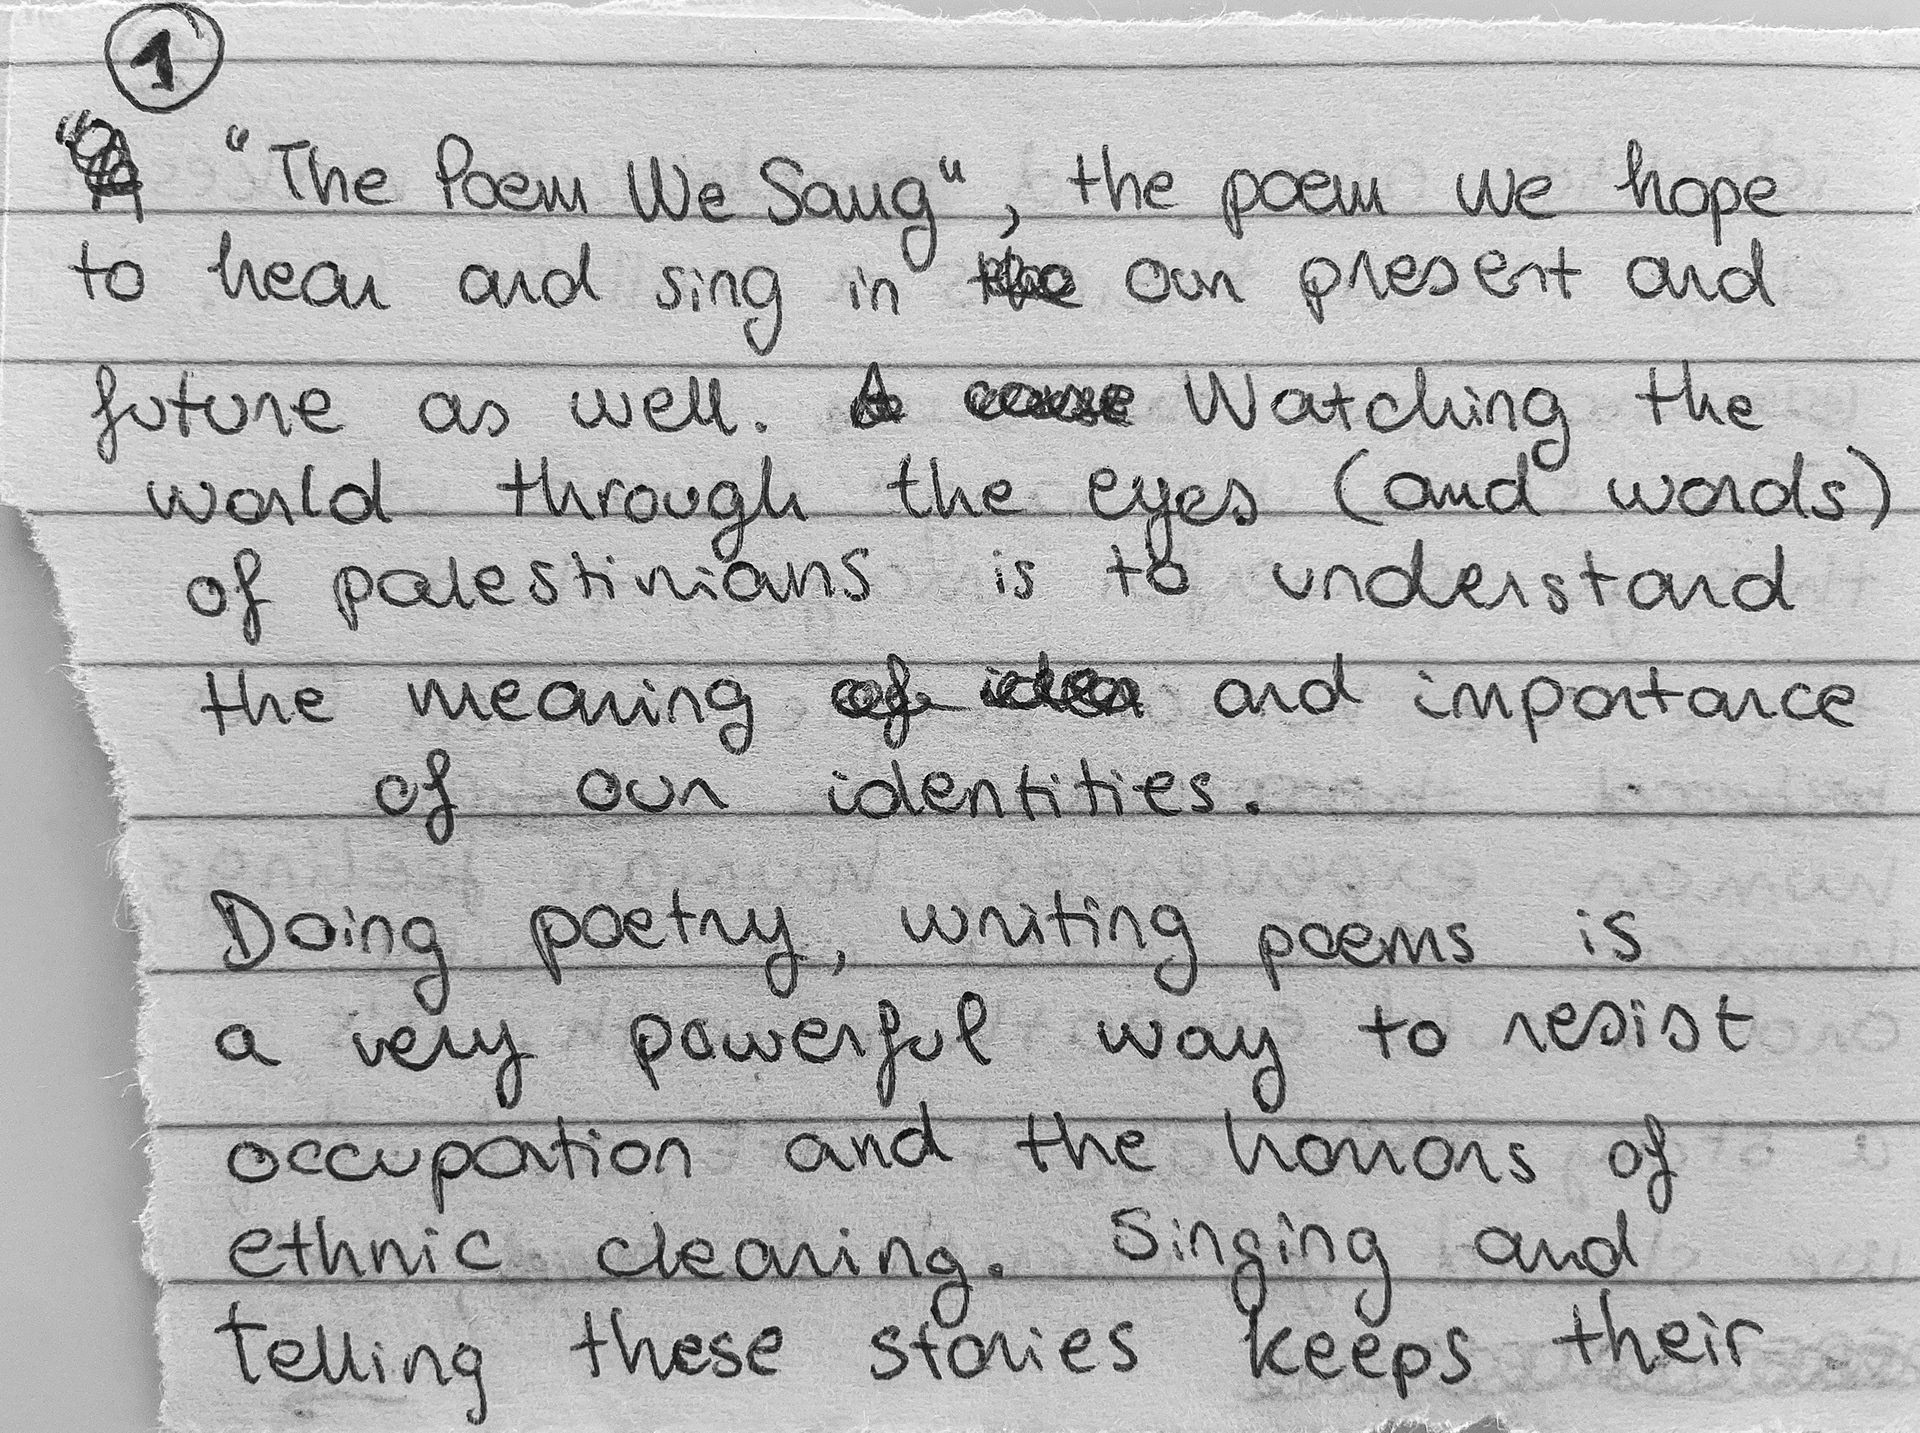 1
"The Poem We Sang", the poem we hope
to hear and sing in our present and
future as well. Watching the
world through the eyes (and words)
of palestinians is to understand
the meaning and importance
of our identities.
Doing poetry, writing poems is
a very powerful way to resist
occupation and the horrors of
ethnic cleaning. Singing and
telling these stories keeps their